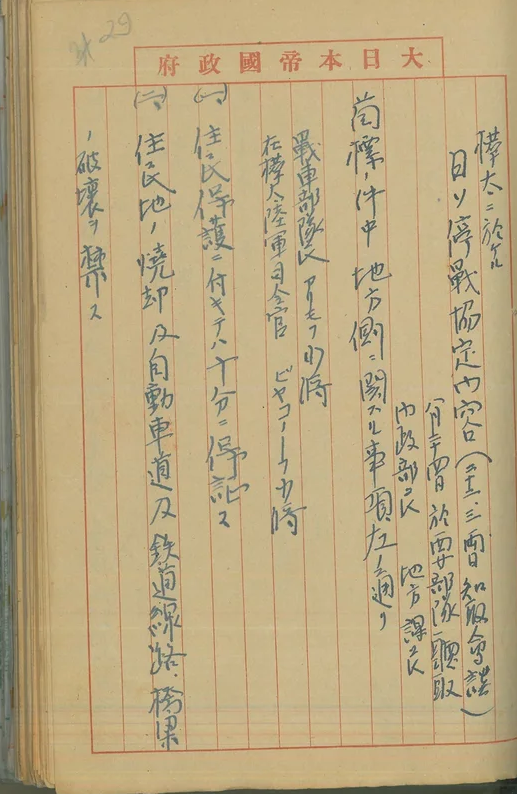 29
大日本帝國政府
樺太ニ於ケル
日ソ停戰協定内容(二十二、三兩日知取會談)
八月二十四日 於 部隊聽取
内政部長 地方課長
首標ノ件中地方側ニ関スル事項左ノ通リ
戰車部隊長 アリモフ少將
在樺太陸軍司令官 ビヤコーノフ少將
(一) 住民保護ニ付キテハ十分ニ保証ス
(二) 住民地ノ燒却及自動車道及鉄道線路、橋梁
ノ破壊ヲ禁ス